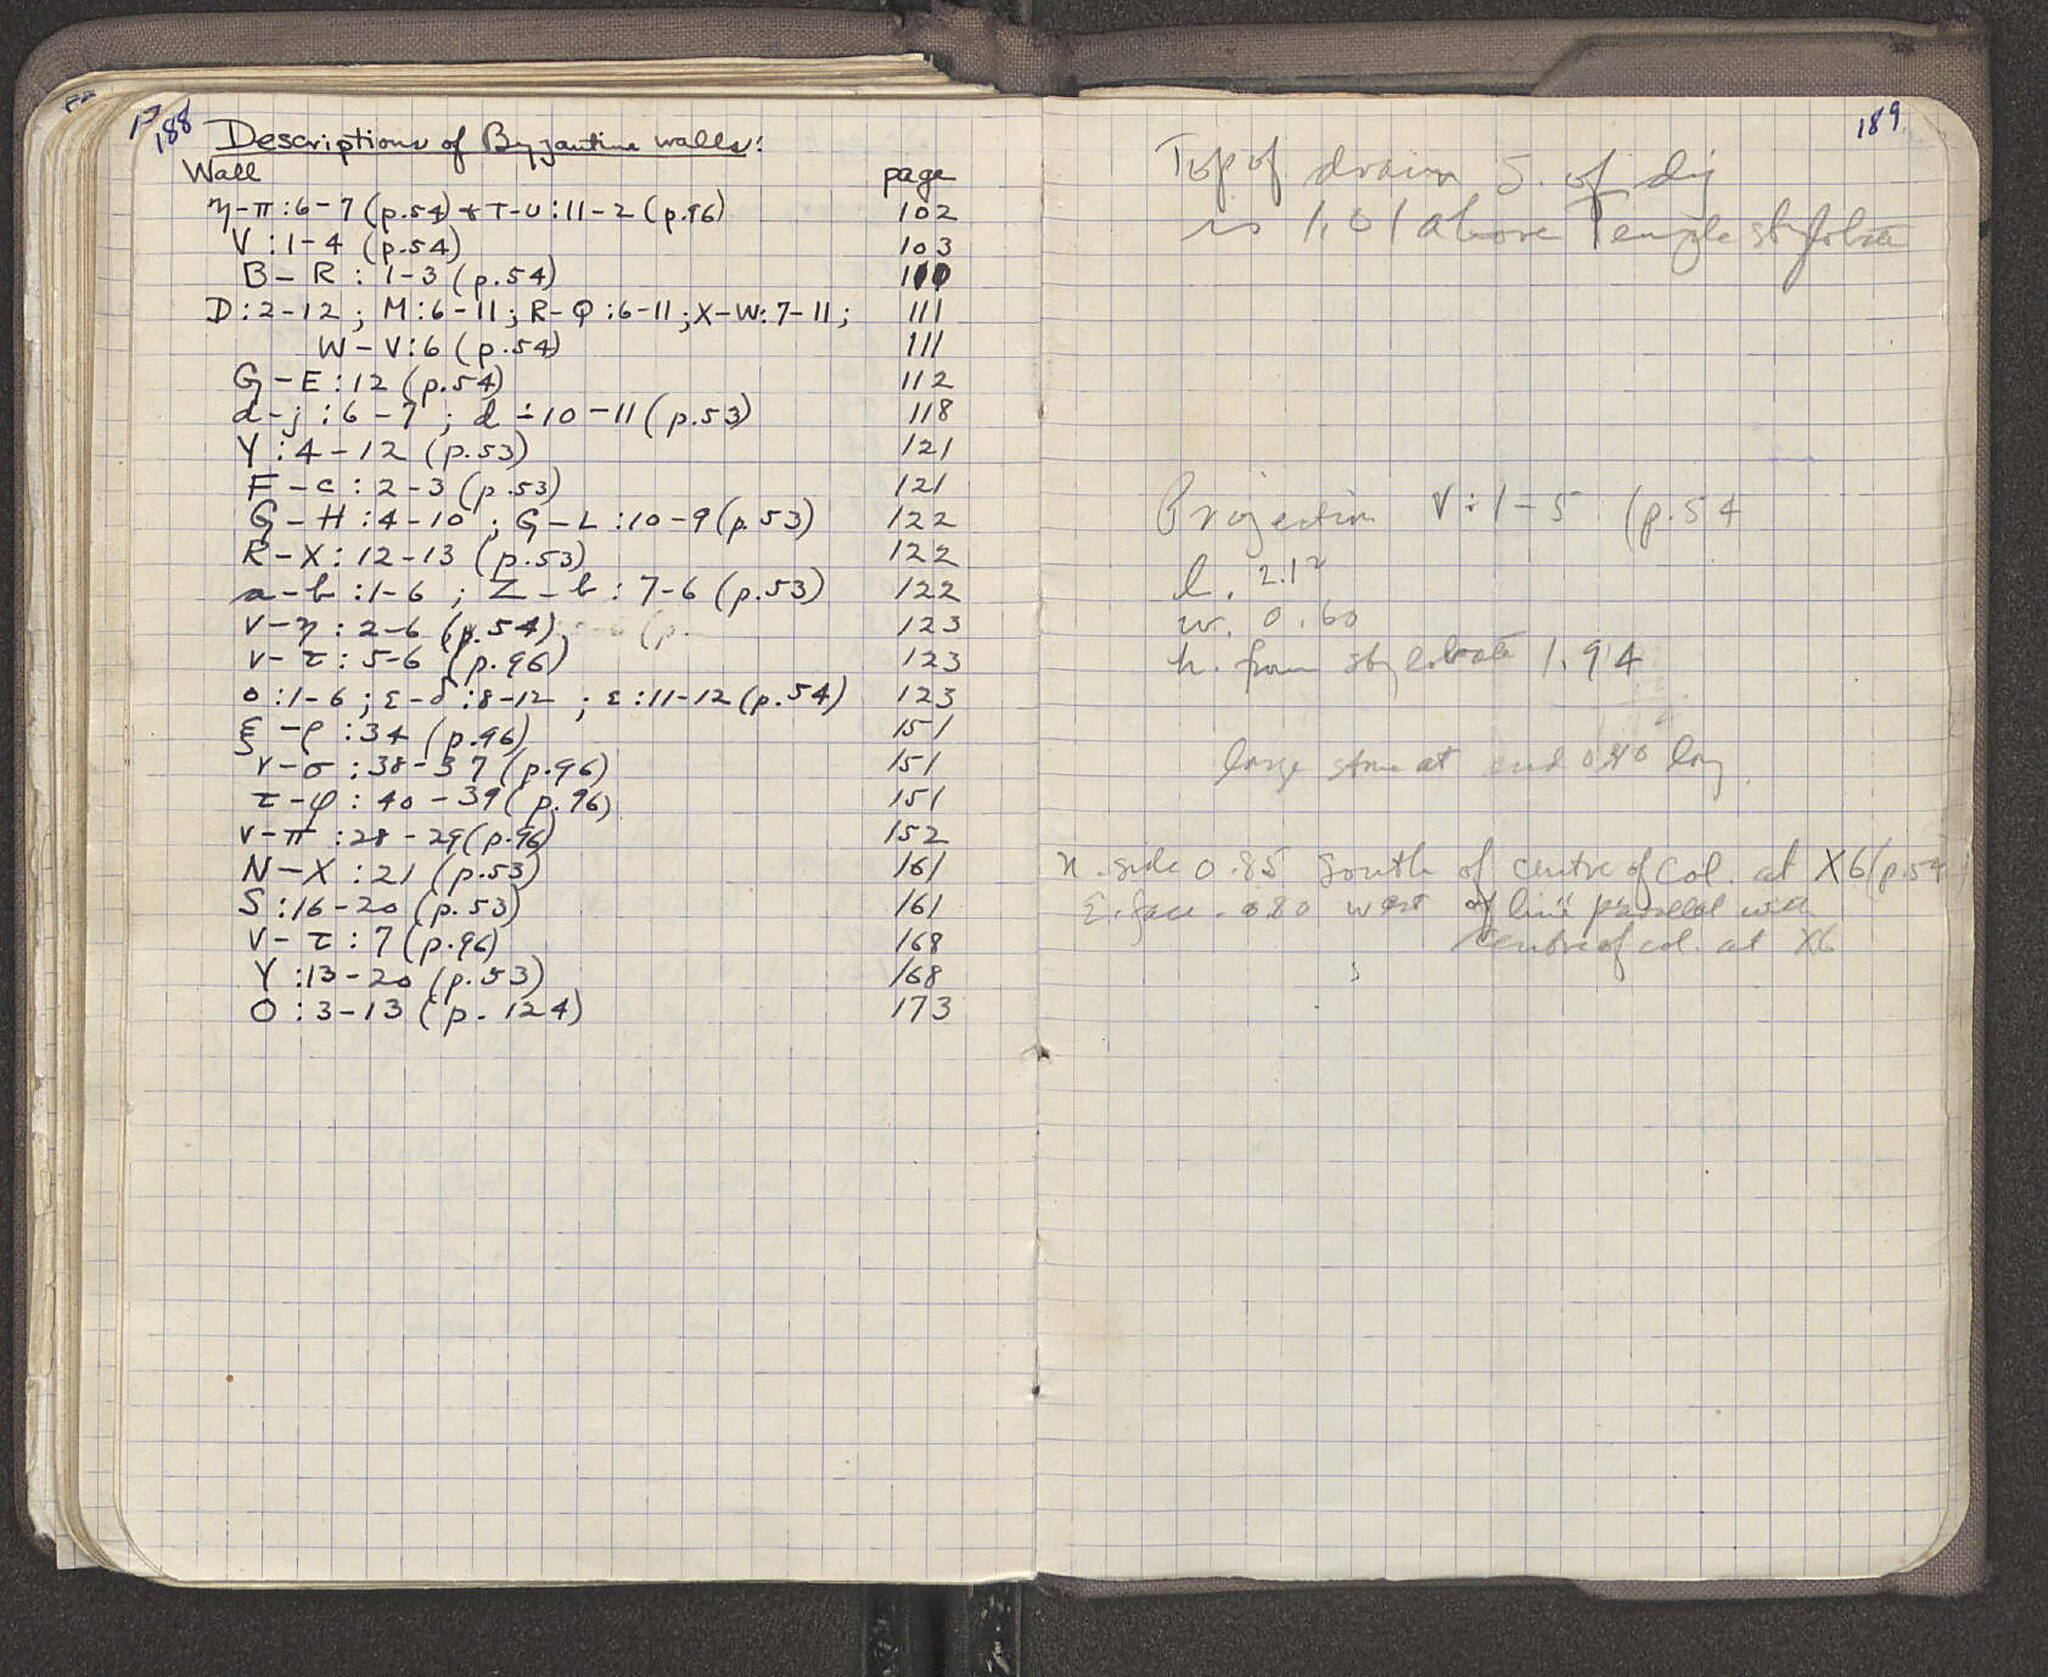 188
Descriptions of Byzantine walls:
Wall page
η-π:6-7 (p.54) + T-U:11-2 (p.96) 102
V:1-4 (p.54) 103
B-R:1-3 (p.54) 110
D:2-12; M:6-11; R-Q:6-11; X-W:7-11; 111
W-V:6 (p.54) 111
G-E:12 (p.54) 112
d-j:6-7; d:10-11 (p.53) 118
Y:4-12 (p.53) 121
F-c:2-3 (p.53) 121
G-H:4-10; G-L:10-9 (p.53) 122
R-X:12-13 (p.53) 122
a-b:1-6; Z-b:7-6 (p.53) 122
ν-η:2-6 (p.54) 123
ν-τ:5-6 (p.96) 123
ο:1-6; ε-δ:8-12; ε:11-12 (p.54) 123
ξ-ρ:34 (p.96) 151
ν-σ:38-37 (p.96) 151
τ-φ:40-39 (p.96) 151
ν-π:28-29 (p.96) 152
N-X:21 (p.53) 161
S:16-20 (p.53) 161
ν-τ:7 (p.96) 168
Y:13-20 (p.53) 168
O:3-13 (p.124) 173
189
Top of drain S. of dig
is 1.01 above Temple stylobate
Projection V:1-5 (p.54
l. 2.12
w. 0.60
h. from stylobate 1.94
large stone at end 0.40 long.
N. side 0.85 south of centre of col. at X6 (p.54)
E. face 0.80 west of line parallel with
centre of col. at X6